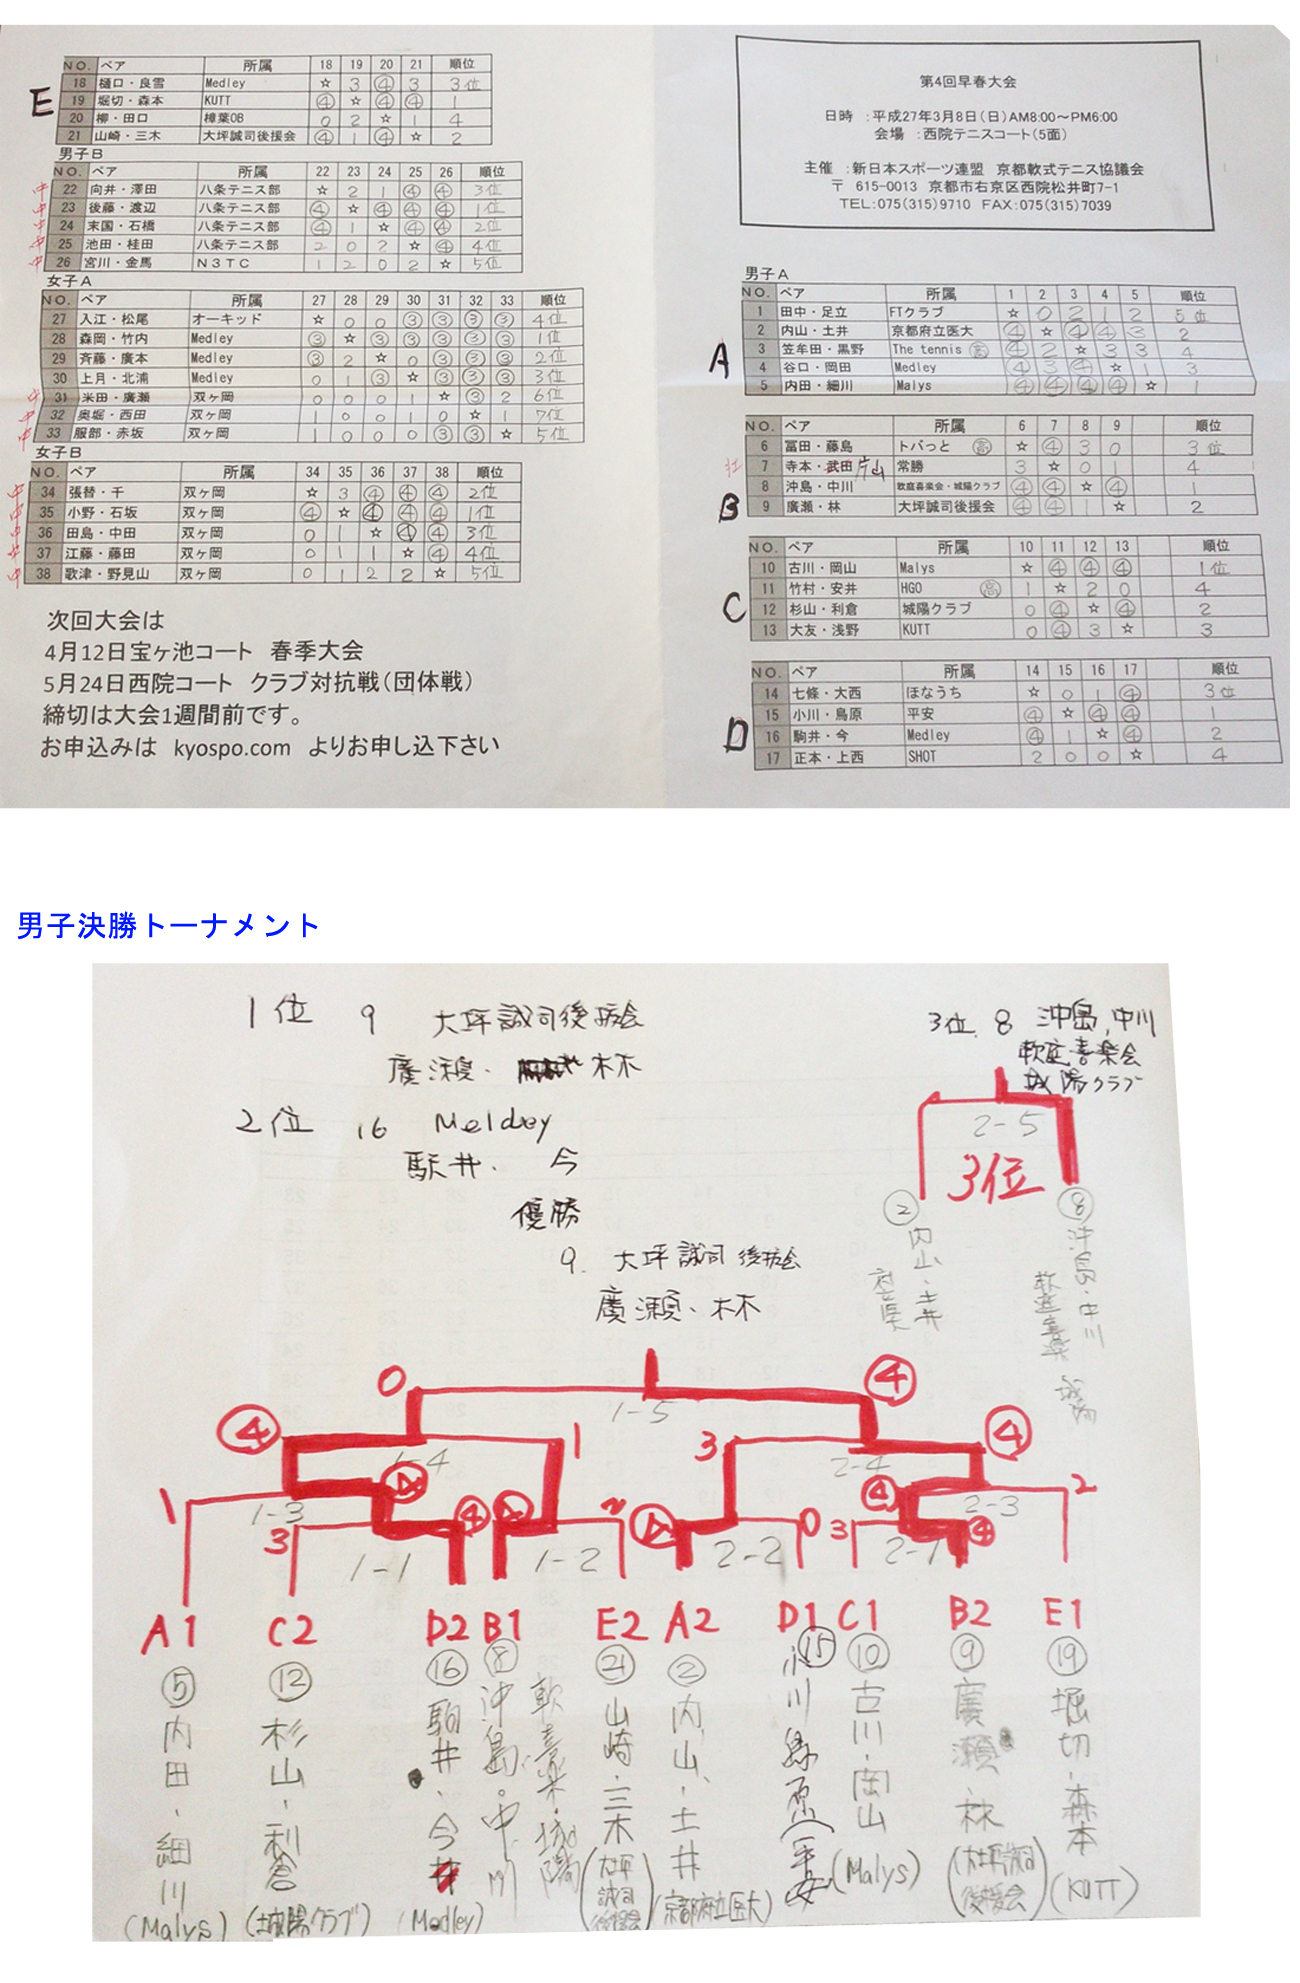 NO. ペア 所属 18 19 20 21 順位
18 樋口・良雪 Medley ☆ 3 ④ 3 3位
19 堀切・森本 KUTT ④ ☆ ④ ④ 1
20 柳・田口 樟葉OB 0 2 ☆ 1 4
21 山崎・三木 大坪誠司後援会 ④ 1 ④ ☆ 2
E
男子B
NO. ペア 所属 22 23 24 25 26 順位
中 22 向井・澤田 八条テニス部 ☆ 2 1 ④ ④ 3位
中 23 後藤・渡辺 八条テニス部 ④ ☆ ④ ④ ④ 1位
中 24 末国・石橋 八条テニス部 ④ 1 ☆ ④ ④ 2位
中 25 池田・桂田 八条テニス部 2 0 2 ☆ ④ 4位
中 26 宮川・金馬 N3TC 1 2 0 2 ☆ 5位
女子A
NO. ペア 所属 27 28 29 30 31 32 33 順位
27 入江・松尾 オーキッド ☆ 0 0 ③ ③ ③ ③ 4位
28 森岡・竹内 Medley ③ ☆ ③ ③ ③ ③ ③ 1位
29 斉藤・廣本 Medley ③ 2 ☆ 0 ③ ③ ③ 2位
30 上月・北浦 Medley 0 1 ③ ☆ ③ ③ ③ 3位
中 31 米田・廣瀬 双ヶ岡 0 0 0 1 ☆ ③ 2 6位
中 32 奥堀・西田 双ヶ岡 1 0 0 1 0 ☆ 1 7位
中 33 服部・赤坂 双ヶ岡 1 0 0 0 ③ ③ ☆ 5位
女子B
NO. ペア 所属 34 35 36 37 38 順位
中 34 張替・千 双ヶ岡 ☆ 3 ④ ④ ④ 2位
中 35 小野・石坂 双ヶ岡 ④ ☆ ④ ④ ④ 1位
中 36 田島・中田 双ヶ岡 0 1 ☆ ④ ④ 3位
中 37 江藤・藤田 双ヶ岡 0 1 1 ☆ ④ 4位
中 38 歌津・野見山 双ヶ岡 0 1 2 2 ☆ 5位
次回大会は
4月12日宝ヶ池コート 春季大会
5月24日西院コート クラブ対抗戦(団体戦)
締切は大会1週間前です。
お申込みは kyospo.com よりお申し込下さい
第4回早春大会
日時 :平成27年3月8日(日)AM8:00~PM6:00
会場 :西院テニスコート(5面)
主催 :新日本スポーツ連盟 京都軟式テニス協議会
〒 615-0013 京都市右京区西院松井町7-1
TEL:075(315)9710 FAX:075(315)7039
男子A
NO. ペア 所属 1 2 3 4 5 順位
1 田中・足立 FTクラブ ☆ 0 2 1 2 5位
2 内山・土井 京都府立医大 ④ ☆ ④ ④ 3 2
3 笠牟田・黒野 The tennis 高 ④ 2 ☆ 3 3 4
4 谷口・岡田 Medley ④ 3 ④ ☆ 1 3
5 内田・細川 Malys ④ ④ ④ ④ ☆ 1
A
NO. ペア 所属 6 7 8 9 順位
6 冨田・藤島 トパっと 高 ☆ ④ 3 0 3位
7 寺本・武田 片山 常勝 3 ☆ 0 1 4
8 沖島・中川 軟庭喜楽会・城陽クラブ ④ ④ ☆ ④ 1
9 廣瀬・林 大坪誠司後援会 ④ ④ 1 ☆ 2
B
NO. ペア 所属 10 11 12 13 順位
10 古川・岡山 Malys ☆ ④ ④ ④ 1位
11 竹村・安井 HGO 高 1 ☆ 2 0 4
12 杉山・利倉 城陽クラブ 0 ④ ☆ ④ 2
13 大友・浅野 KUTT 0 ④ 3 ☆ 3
C
NO. ペア 所属 14 15 16 17 順位
14 七條・大西 ほなうち ☆ 0 1 ④ 3位
15 小川・鳥原 平安 ④ ☆ ④ ④ 1
16 駒井・今 Medley ④ 1 ☆ ④ 2
17 正本・上西 SHOT 2 0 0 ☆ 4
D
男子決勝トーナメント
1位 9 大坪誠司後援会
廣瀬・林
2位 16 Meldey
駒井・今
優勝
9. 大坪誠司後援会
廣瀬・林
3位 8 沖島,中川
軟庭喜楽会
城陽クラブ
2-5
3位
② 内山・土井 府立医
⑧ 沖島・中川 軟庭喜楽 城陽
0 1-5 ④
④ 1-4 1 3 2-4 ④
1 1-3 ④ ④ 2-3 2
3 1-1 ④ ④ 1-2 2 ④ 2-2 0 3 2-1 ④
A1 C2 D2 B1 E2 A2 D1 C1 B2 E1
⑤ 内田・細川 (Malys)
⑫ 杉山・利倉 (城陽クラブ)
⑯ 駒井・今 (Medley)
⑧ 沖島・中川 軟喜楽・城陽
㉑ 山崎・三木 (大坪誠司後援会)
② 内山・土井 (京都府立医大)
⑮ 小川 鳥原 (平安
⑩ 古川・岡山 (Malys)
⑨ 廣瀬・林 (大坪誠司後援会)
⑲ 堀切・森本 (KUTT)